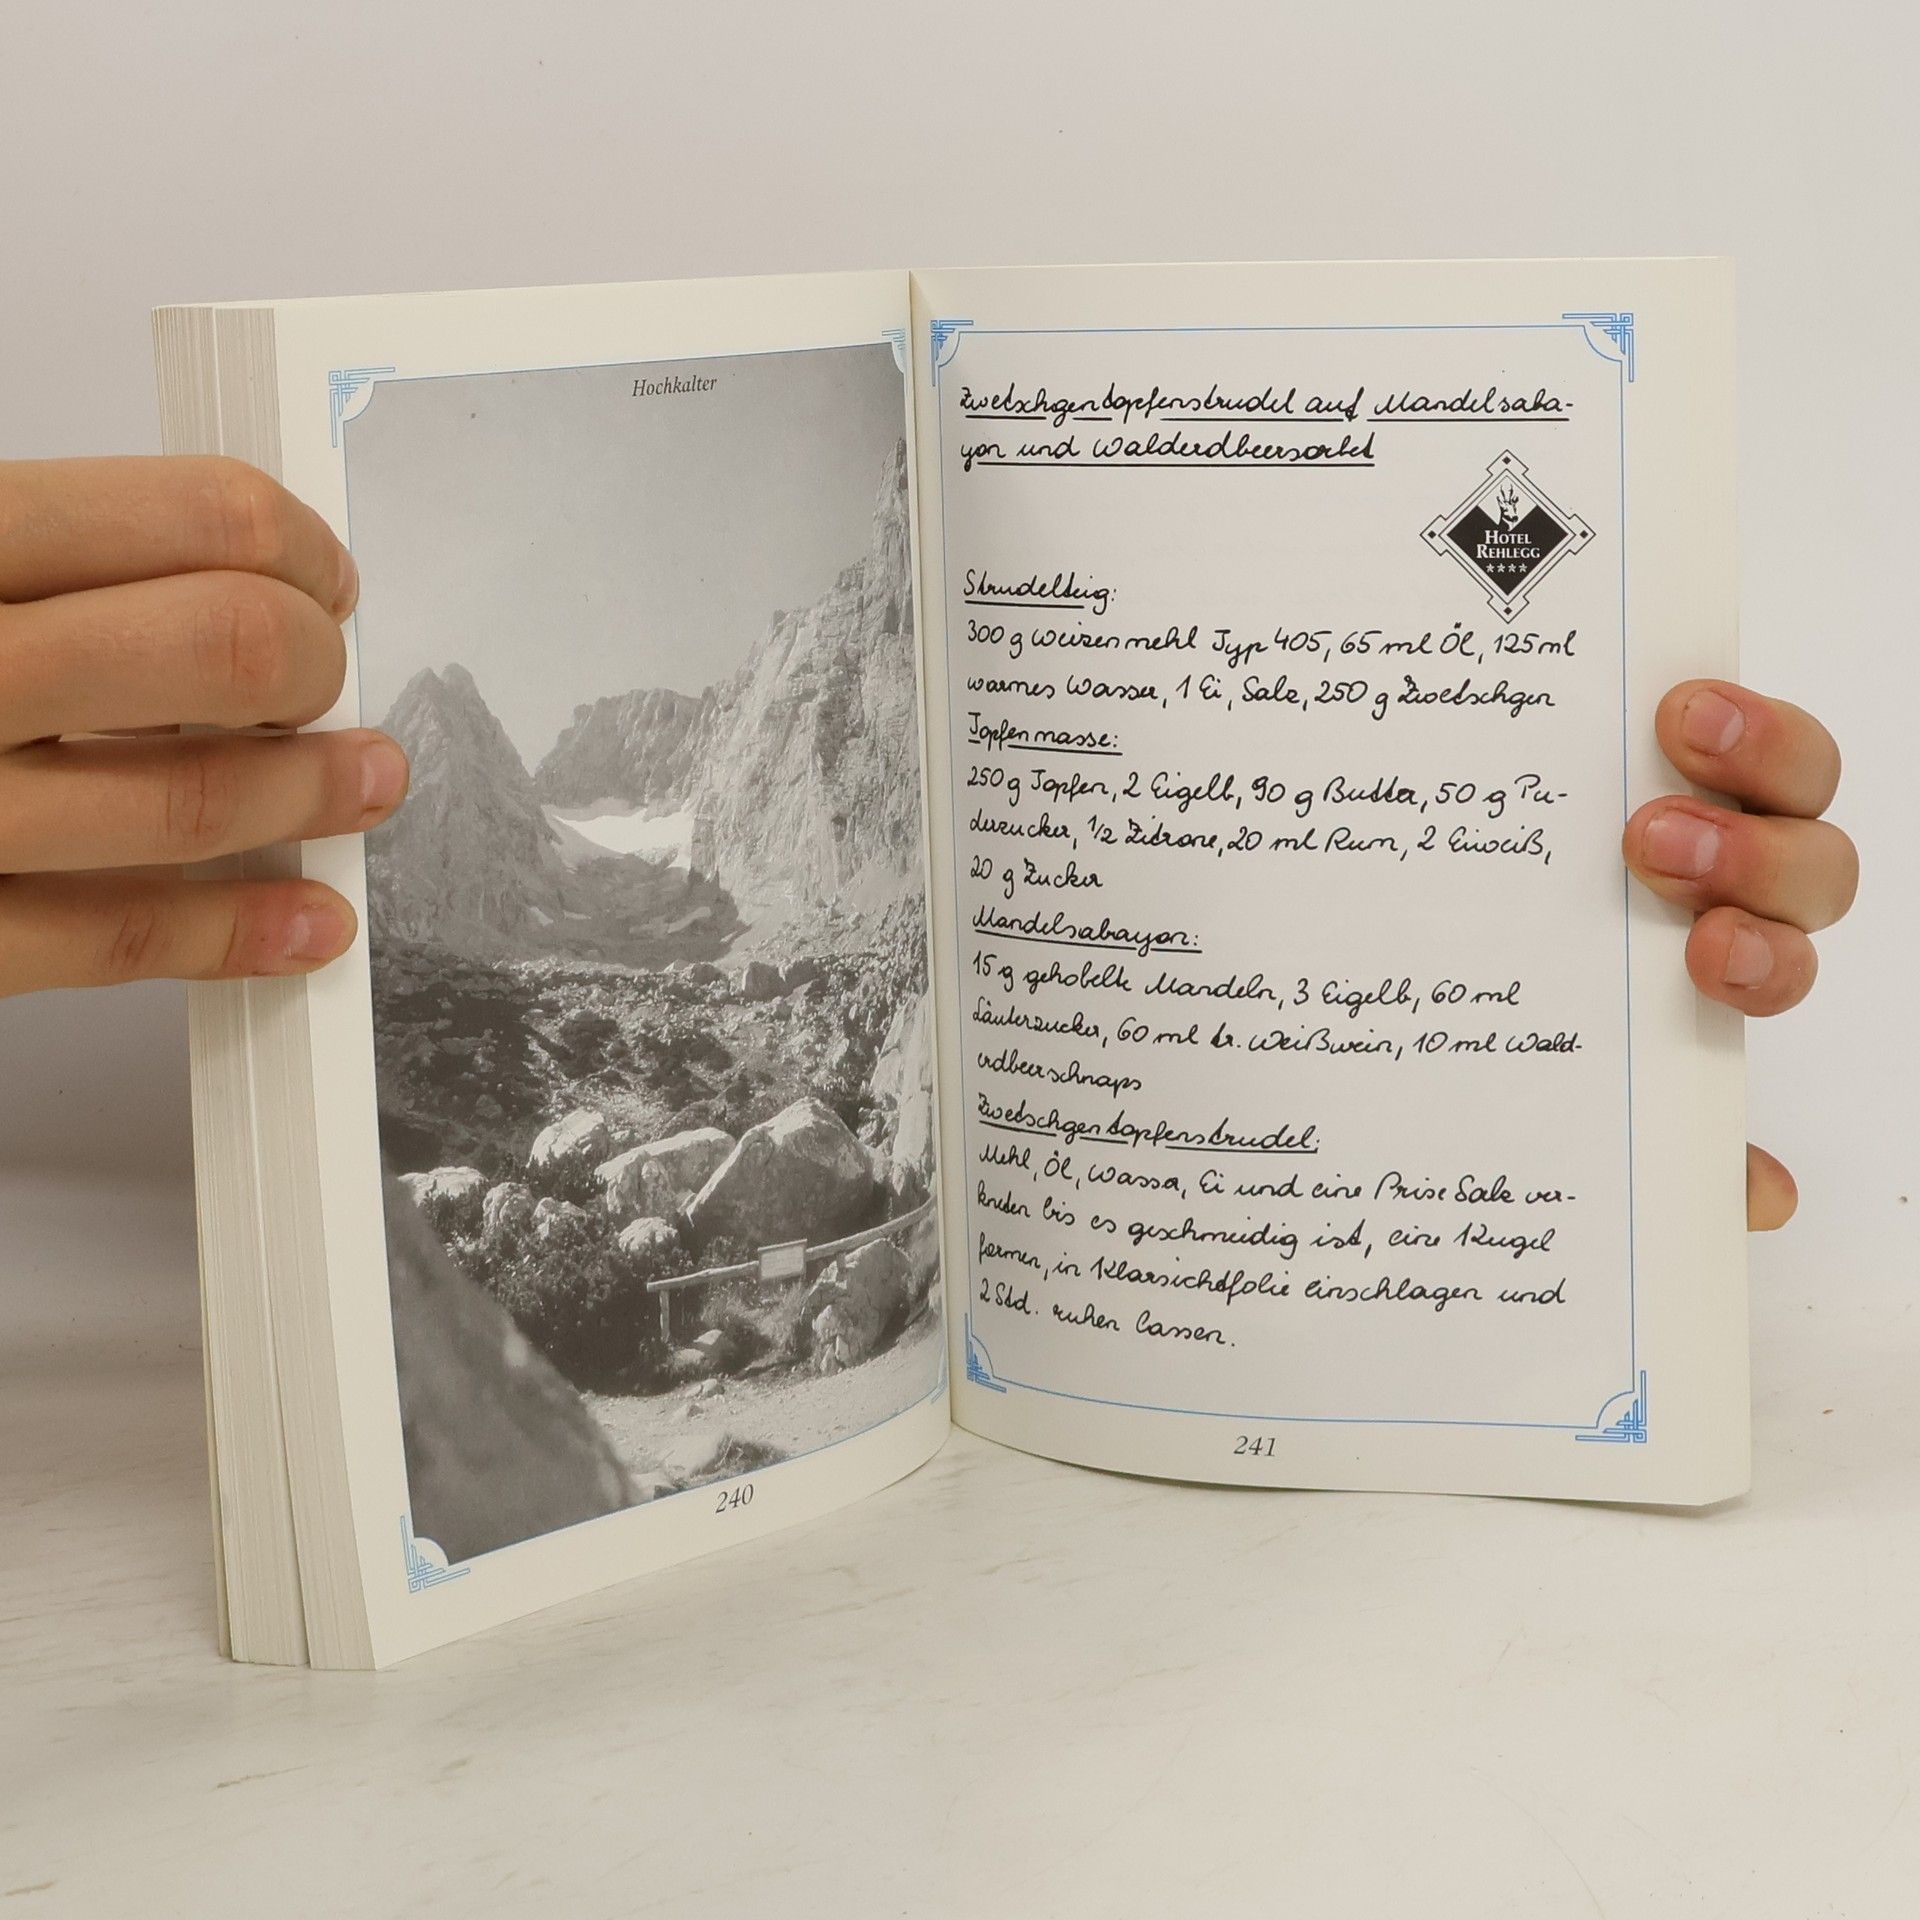 Hochkalter
240
Zwetschgentopfenstrudel auf Mandelsaba-
yon und Walderdbeersorbet
HOTEL
REHLEGG
****
Strudelteig:
300 g Weizenmehl Typ 405, 65 ml Öl, 125 ml
warmes Wasser, 1 Ei, Salz, 250 g Zwetschgen
Topfenmasse:
250 g Topfen, 2 Eigelb, 90 g Butter, 50 g Pu-
derzucker, 1/2 Zitrone, 20 ml Rum, 2 Eiweiß,
20 g Zucker
Mandelsabayon:
15 g gehobelte Mandeln, 3 Eigelb, 60 ml
Läuterzucker, 60 ml tr. Weißwein, 10 ml Wald-
erdbeerschnaps
Zwetschgentopfenstrudel:
Mehl, Öl, Wasser, Ei und eine Prise Salz ver-
kneten bis es geschmeidig ist, eine Kugel
formen, in Klarsichtfolie einschlagen und
2 Std. ruhen lassen.
241